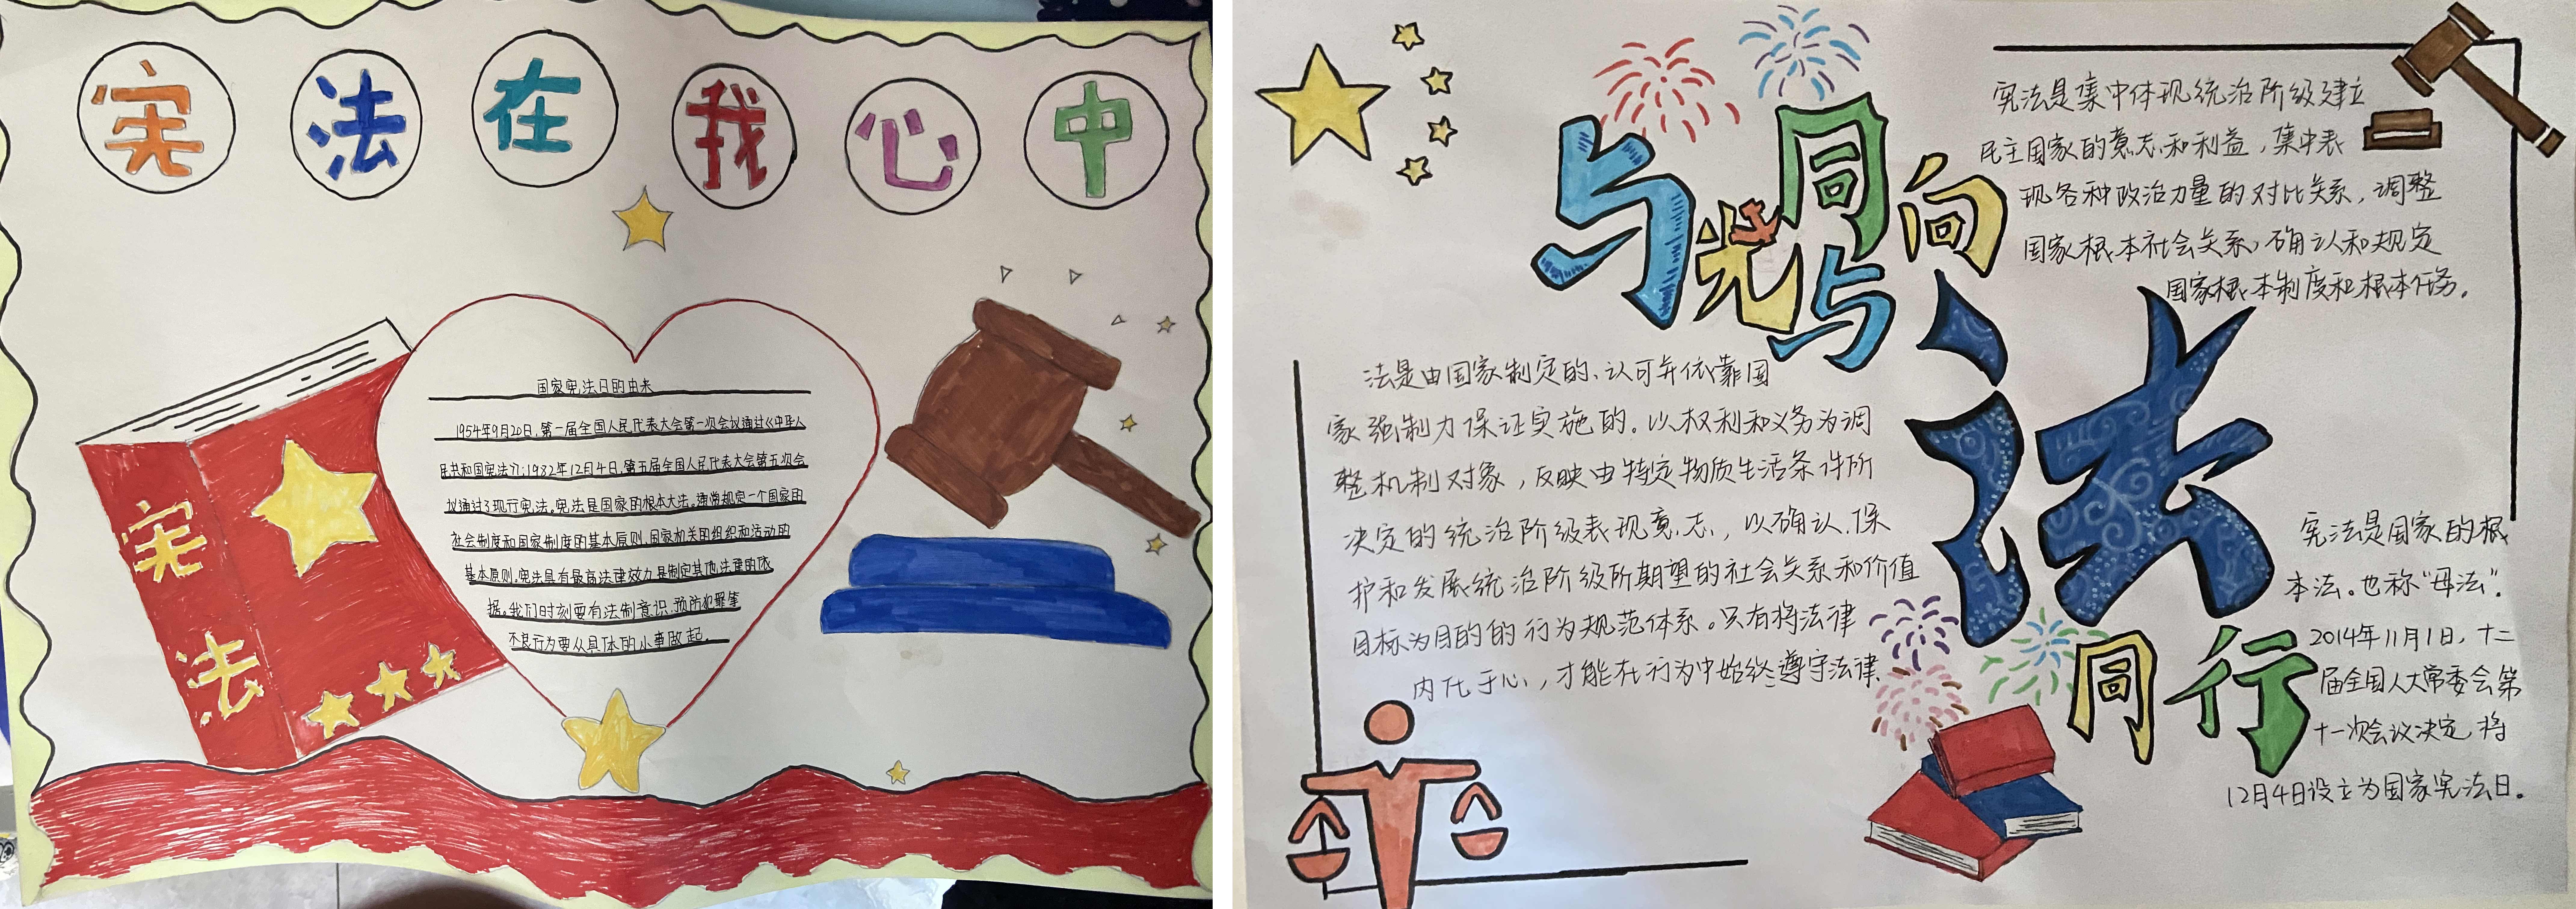 宪法在我心中
宪法
国家宪法日的由来
1954年9月20日,第一届全国人民代表大会第一次会议通过《中华人
民共和国宪法》;1982年12月4日,第五届全国人民代表大会第五次会
议通过了现行宪法。宪法是国家的根本大法。通常规定一个国家的
社会制度和国家制度的基本原则,国家机关的组织和活动的
基本原则,宪法具有最高法律效力,是制定其他法律的依
据。我们时刻要有法制意识,预防犯罪等
不良行为要从具体的小事做起。
与光同向
与法同行
宪法是集中体现统治阶级建立
民主国家的意志和利益,集中表
现各种政治力量的对比关系,调整
国家根本社会关系,确认和规定
国家根本制度和根本任务。
法是由国家制定的、认可并依靠国
家强制力保证实施的。以权利和义务为调
整机制对象,反映由特定物质生活条件所
决定的统治阶级表现意志,以确认.保
护和发展统治阶级所期望的社会关系和价值
目标为目的的行为规范体系。只有将法律
内化于心,才能在行为中始终遵守法律.
宪法是国家的根
本法。也称“母法”.
2014年11月1日,十二
届全国人大常委会第
十一次会议决定,将
12月4日设立为国家宪法日。